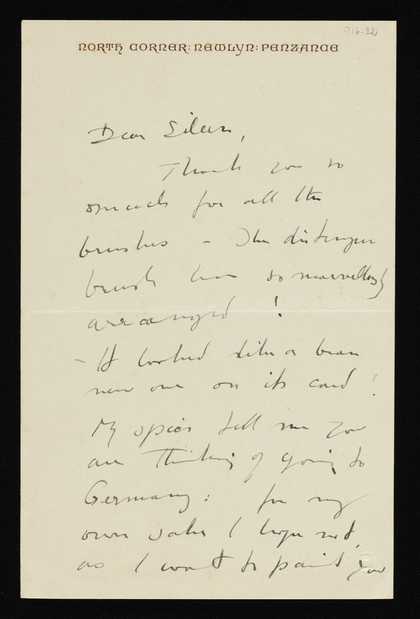 NORTH CORNER: NEWLYN: PENZANCE
Dear Eileen,
Thank you so
much for all the
brushes - The distemper
brush was so marvellously
arranged!
- It looked like a bran
new one on its card!
My spies tell me you
are thinking of going to
Germany: for my
own sake I hope not,
as I want to paint you